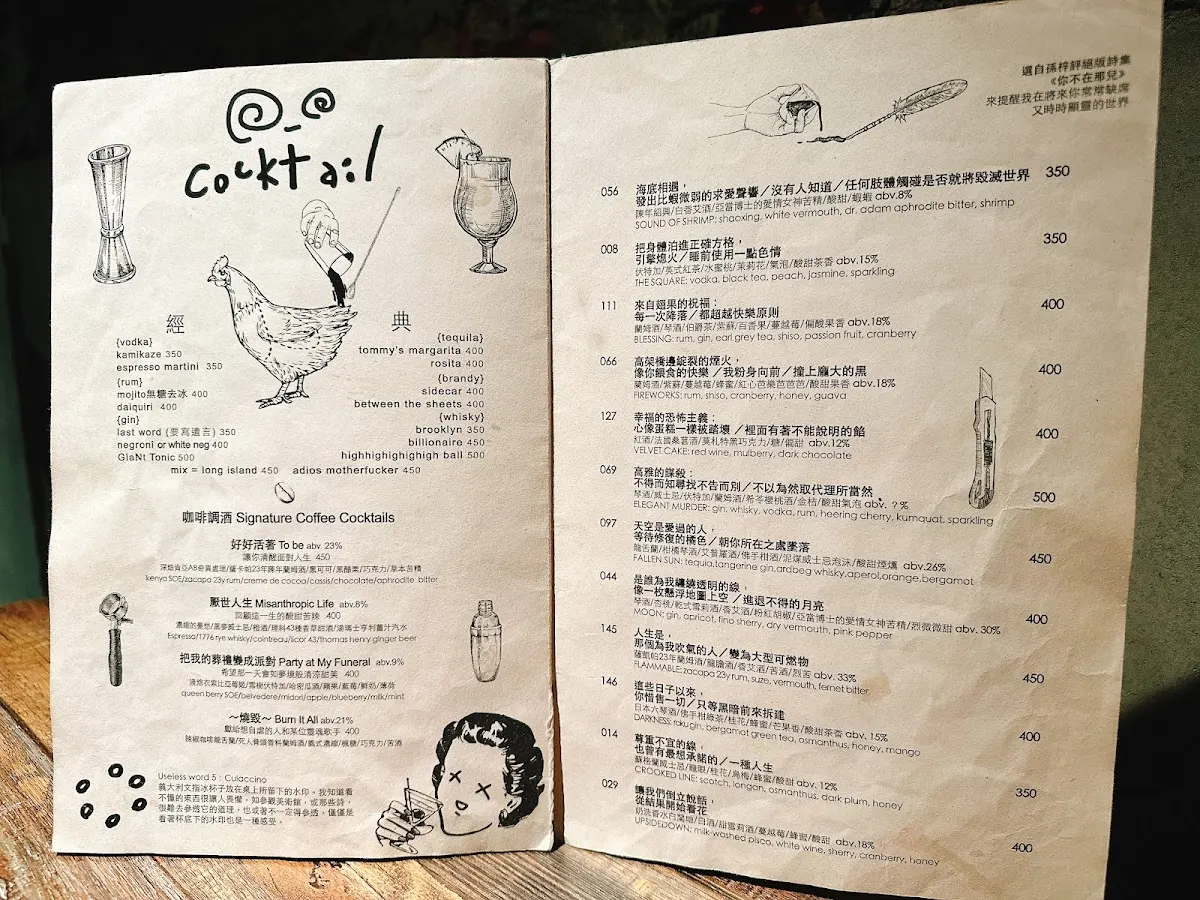 @_@
Cocktail
經 典
{vodka}
kamikaze 350
espresso martini 350
{rum}
mojito無糖去冰 400
daiquiri 400
{gin}
last word (要寫遺言) 350
negroni or white neg 400
GlaNt Tonic 500
{tequila}
tommy's margarita 400
rosita 400
{brandy}
sidecar 400
between the sheets 400
{whisky}
brooklyn 350
billionaire 450
highhighighighigh ball 500
mix = long island 450 adios motherfucker 450
咖啡調酒 Signature Coffee Cocktails
好好活著 To be abv. 23%
讓你清醒面對人生 450
深焙肯亞AB奇異處理/薩卡帕23年陳年蘭姆酒/黑可可/黑醋栗/巧克力/草本苦精
kenya SOE/zacapa 23y rum/creme de cocoa/cassis/chocolate/aphrodite bitter
厭世人生 Misanthropic Life abv.8%
回顧這一生的酸甜苦辣 400
濃縮的憂愁/黑麥威士忌/橙酒/理科43種香草甜酒/湯瑪士亨利薑汁汽水
Espresso/1776 rye whisky/cointreau/licor 43/thomas henry ginger beer
把我的葬禮變成派對 Party at My Funeral abv.9%
希望那一天會如夢境般清涼甜美 400
淺焙衣索比亞莓姬/雪樹伏特加/哈密瓜酒/蘋果/藍莓/鮮奶/薄荷
queen berry SOE/belvedere/midori/apple/blueberry/milk/mint
～燒毀～ Burn It All abv.21%
獻給想自虐的人和某位靈魂歌手 400
辣椒咖啡龍舌蘭/死人骨頭香料蘭姆酒/義式濃縮/楓糖/巧克力/苦酒
Useless word 5：Culaccino
義大利文指冰杯子放在桌上所留下的水印。我知道看
不懂的東西很讓人畏懼，如參觀美術館，或那些詩，
很難去參透它的道理，也或著不一定得參透，僅僅是
看著杯底下的水印也是一種感受。
選自孫梓評絕版詩集
《你不在那兒》
來提醒我在將來你常常缺席
又時時顯靈的世界
056 海底相遇， 350
發出比蝦微弱的求愛聲響／沒有人知道／任何肢體觸碰是否就將毀滅世界
陳年紹興/白香艾酒/亞當博士的愛情女神苦精/酸甜/蝦蝦 abv.8%
SOUND OF SHRIMP: shaoxing, white vermouth, dr. adam aphrodite bitter, shrimp
008 把身體泊進正確方格， 350
引擎熄火／睡前使用一點色情
伏特加/英式紅茶/水蜜桃/茉莉花/氣泡/酸甜茶香 abv.15%
THE SQUARE: vodka, black tea, peach, jasmine, sparkling
111 來自翅果的祝福： 400
每一次降落／都超越快樂原則
蘭姆酒/琴酒/伯爵茶/紫蘇/百香果/蔓越莓/偏酸果香 abv.18%
BLESSING: rum, gin, earl grey tea, shiso, passion fruit, cranberry
066 高架橋邊綻裂的煙火， 400
像你餵食的快樂／我粉身向前／撞上龐大的黑
蘭姆酒/紫蘇/蔓越莓/蜂蜜/紅心芭樂芭芭芭/酸甜果香 abv.18%
FIREWORKS: rum, shiso, cranberry, honey, guava
127 幸福的恐怖主義： 400
心像蛋糕一樣被踏壞／裡面有著不能說明的餡
紅酒/法國桑葚酒/莫札特黑巧克力/糖/偏甜 abv.12%
VELVET CAKE: red wine, mulberry, dark chocolate
069 高雅的謀殺： 500
不得而知尋找不告而別／不以為然取代理所當然
琴酒/威士忌/伏特加/蘭姆酒/希苓櫻桃酒/金桔/酸甜氣泡 abv.？%
ELEGANT MURDER: gin, whisky, vodka, rum, heering cherry, kumquat, sparkling
097 天空是愛過的人， 450
等待修復的橘色／朝你所在之處墜落
龍舌蘭/柑橘琴酒/艾普羅酒/佛手柑酒/泥煤威士忌泡沫/酸甜煙燻 abv.26%
FALLEN SUN: tequila,tangerine gin,ardbeg whisky,aperol,orange,bergamot
044 是誰為我纏繞透明的線， 400
像一枚懸浮地圖上空／進退不得的月亮
琴酒/杏桃/乾式雪莉酒/香艾酒/粉紅胡椒/亞當博士的愛情女神苦精/烈微微甜 abv. 30%
MOON: gin, apricot, fino sherry, dry vermouth, pink pepper
145 人生是， 450
那個為我吹氣的人／變為大型可燃物
薩凱帕23年蘭姆酒/龍膽酒/香艾酒/苦酒/烈苦 abv. 33%
FLAMMABLE: zacapa 23y rum, suze, vermouth, fernet bitter
146 這些日子以來， 400
你惜售一切／只等黑暗前來拆建
日本六琴酒/佛手柑綠茶/桂花/蜂蜜/芒果香/酸甜茶香 abv. 15%
DARKNESS: roku gin, bergamot green tea, osmanthus, honey, mango
014 尊重不宜的線， 350
也曾有最想承諾的／一種人生
蘇格蘭威士忌/龍眼/桂花/烏梅/蜂蜜/酸甜 abv. 12%
CROOKED LINE: scotch, longan, osmanthus, dark plum, honey
029 讓我們倒立說話， 400
從結果開始看花
奶洗香水白蘭地/白酒/甜雪莉酒/蔓越莓/蜂蜜/酸甜 abv.18%
UPSIDEDOWN: milk-washed pisco, white wine, sherry, cranberry, honey